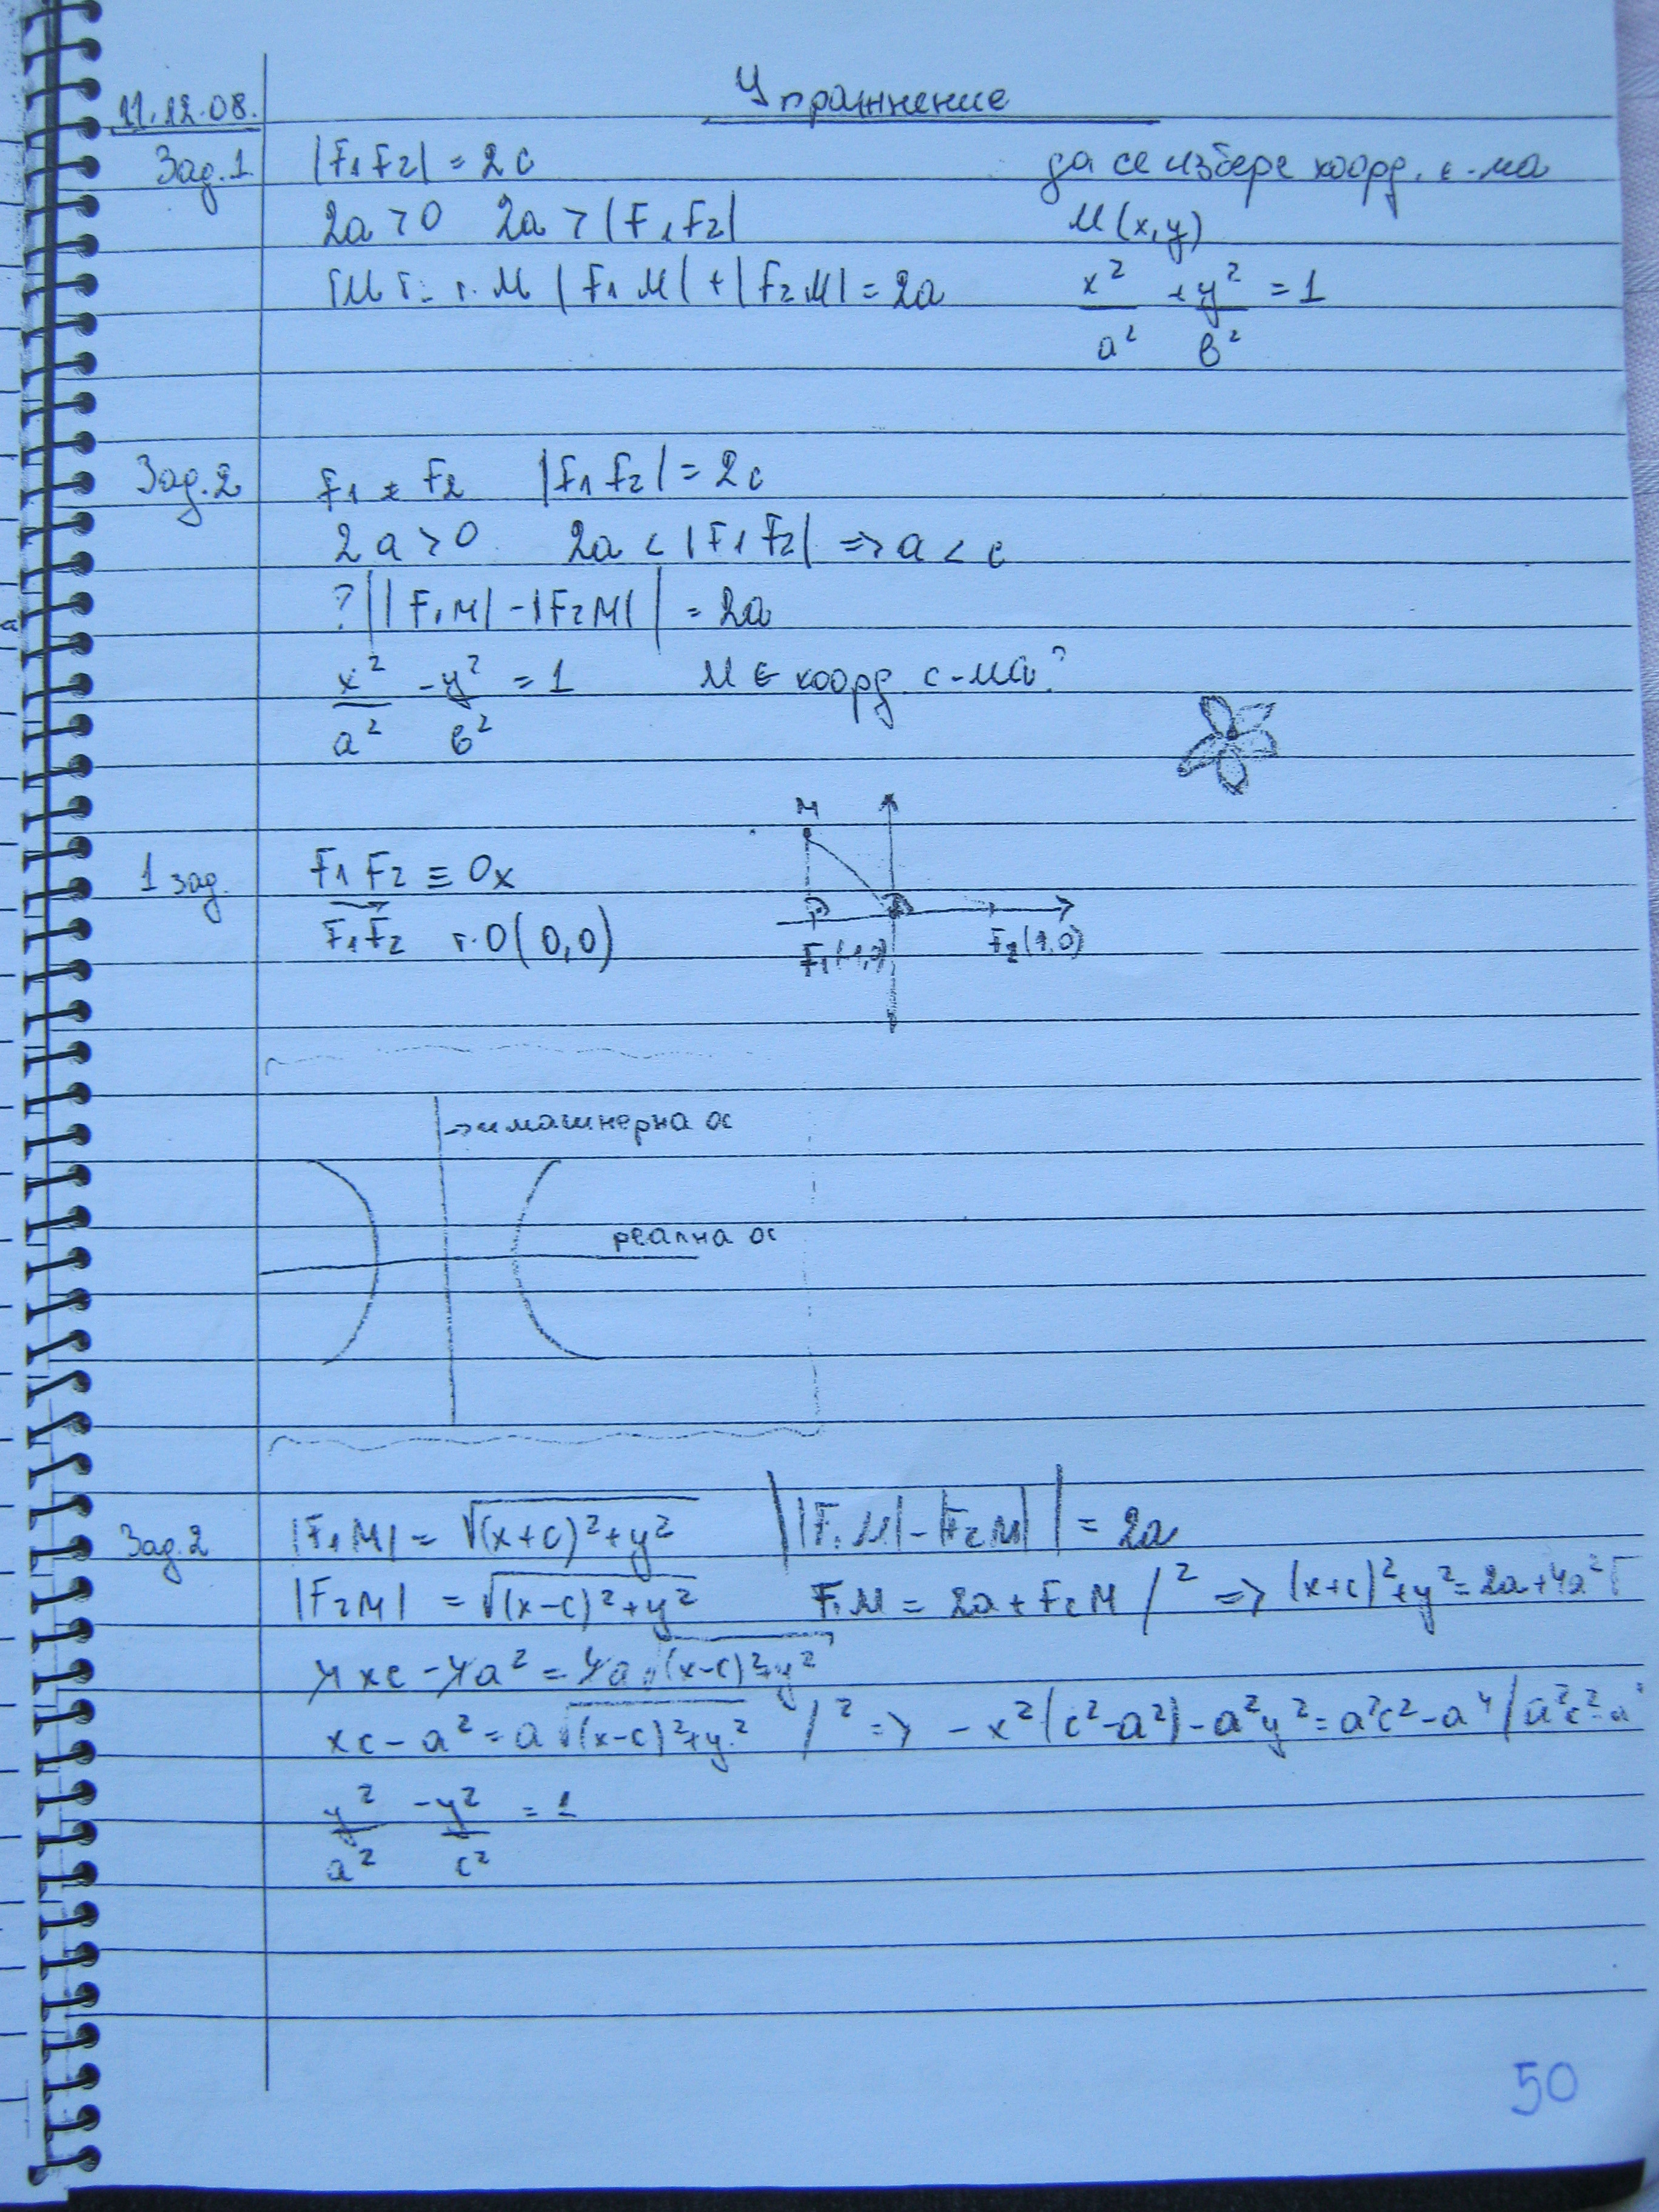 Упражнение
11.12.08.
Зад.1 |F₁F₂| = 2c да се избере коорд. с-ма
2a > 0 2a > |F₁F₂| M(x,y)
ГМТ: т. M |F₁M| + |F₂M| = 2a x²/a² + y²/b² = 1
Зад.2 F₁ ≠ F₂ |F₁F₂| = 2c
2a > 0 2a < |F₁F₂| => a < c
? ||F₁M| - |F₂M|| = 2a
x²/a² - y²/b² = 1 M ∈ коорд. с-ма?
M
1 зад. F₁F₂ ≡ Ox
F₁F₂ т.O(0,0)
F₁(-1,0) F₂(1,0)
→ имагинерна ос
реална ос
Зад.2 |F₁M| = √(x+c)²+y² ||F₁M| - |F₂M|| = 2a
|F₂M| = √(x-c)²+y² F₁M = 2a + F₂M /² => (x+c)²+y² = 2a+4a²√
4xc - 4a² = 4a√(x-c)²+y²
xc - a² = a√(x-c)²+y² /² => -x²(c²-a²) - a²y² = a²c² - a⁴ / a²c²-a⁴
y²/a² - y²/c² = 1
50